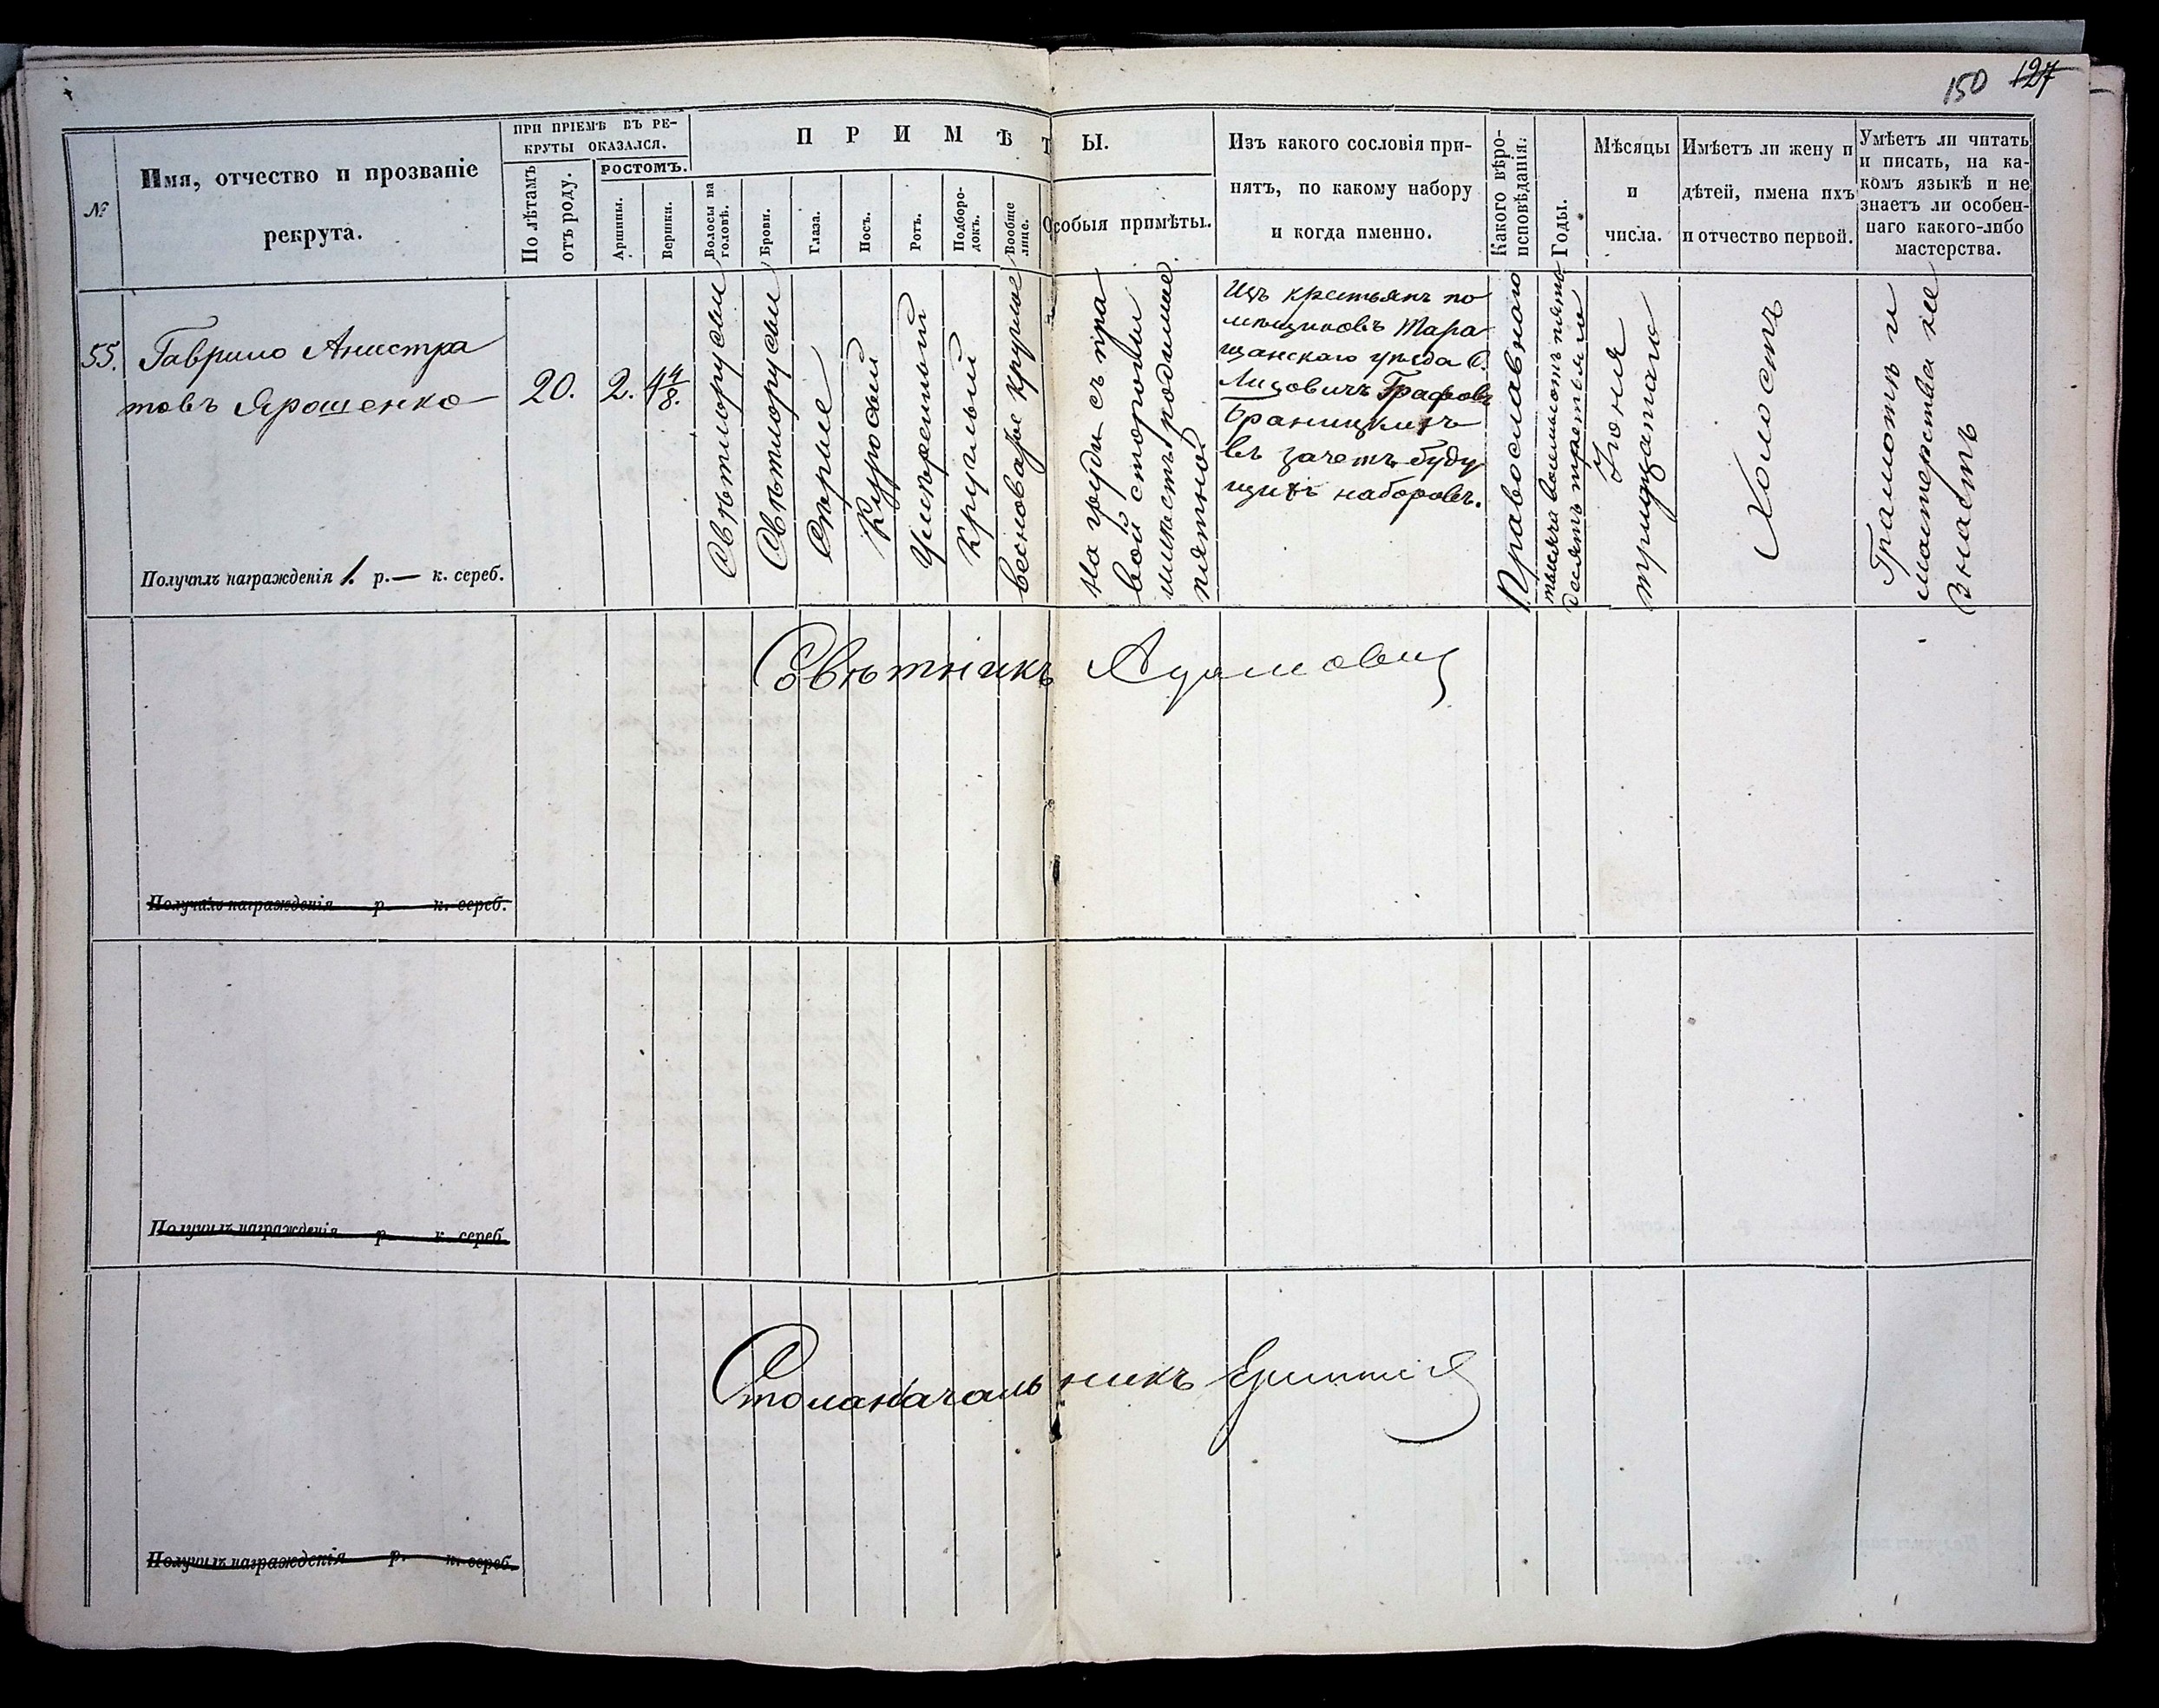 150 127
№
Имя, отчество и прозваніе
рекрута.
ПРИ ПРІЕМѢ ВЪ РЕ-
КРУТЫ ОКАЗАЛСЯ.
По лѣтамъ
отъ роду.
РОСТОМЪ.
Аршины.
Вершки.
ПРИМѢТЫ.
Волосы на
головѣ.
Брови.
Глаза.
Носъ.
Ротъ.
Подборо-
докъ.
Вообще
лице.
Особыя примѣты.
Изъ какого сословія при-
нятъ, по какому набору
и когда именно.
Какого вѣро-
исповѣданія.
Годы.
Мѣсяцы
и
числа.
Имѣетъ ли жену и
дѣтей, имена ихъ
и отчество первой.
Умѣетъ ли читать
и писать, на ка-
комъ языкѣ и не
знаетъ ли особен-
наго какого-либо
мастерства.
55.
Гаврило Анистра
товъ Ярошенко
20.
2.
4 4/8.
Свѣтлорусыи
Свѣтлорусыи
Сѣрые
Курносый
Умѣренный
Круглый
весноватое круглое
На груди съ пра
вой стороны
имѣетъ родимое
пятно
Изъ крестьянъ по
мѣщиковъ Тара
щанскаго уѣзда С.
Лисовичъ Графовъ
Браницкихъ
въ зачетъ буду
щихъ наборовъ.
Православнаго
тысяча восемьсотъ пять
десятъ третьяго
Іюня
тридцатаго
Холостъ
Грамотѣ и
мастерства не
знаетъ
Получилъ награжденія 1. р. — к. сереб.
Совѣтникъ Адамович
Получилъ награжденія р. к. сереб.
Получилъ награжденія р. к. сереб.
Столоначальникъ
Получилъ награжденія р. к. сереб.